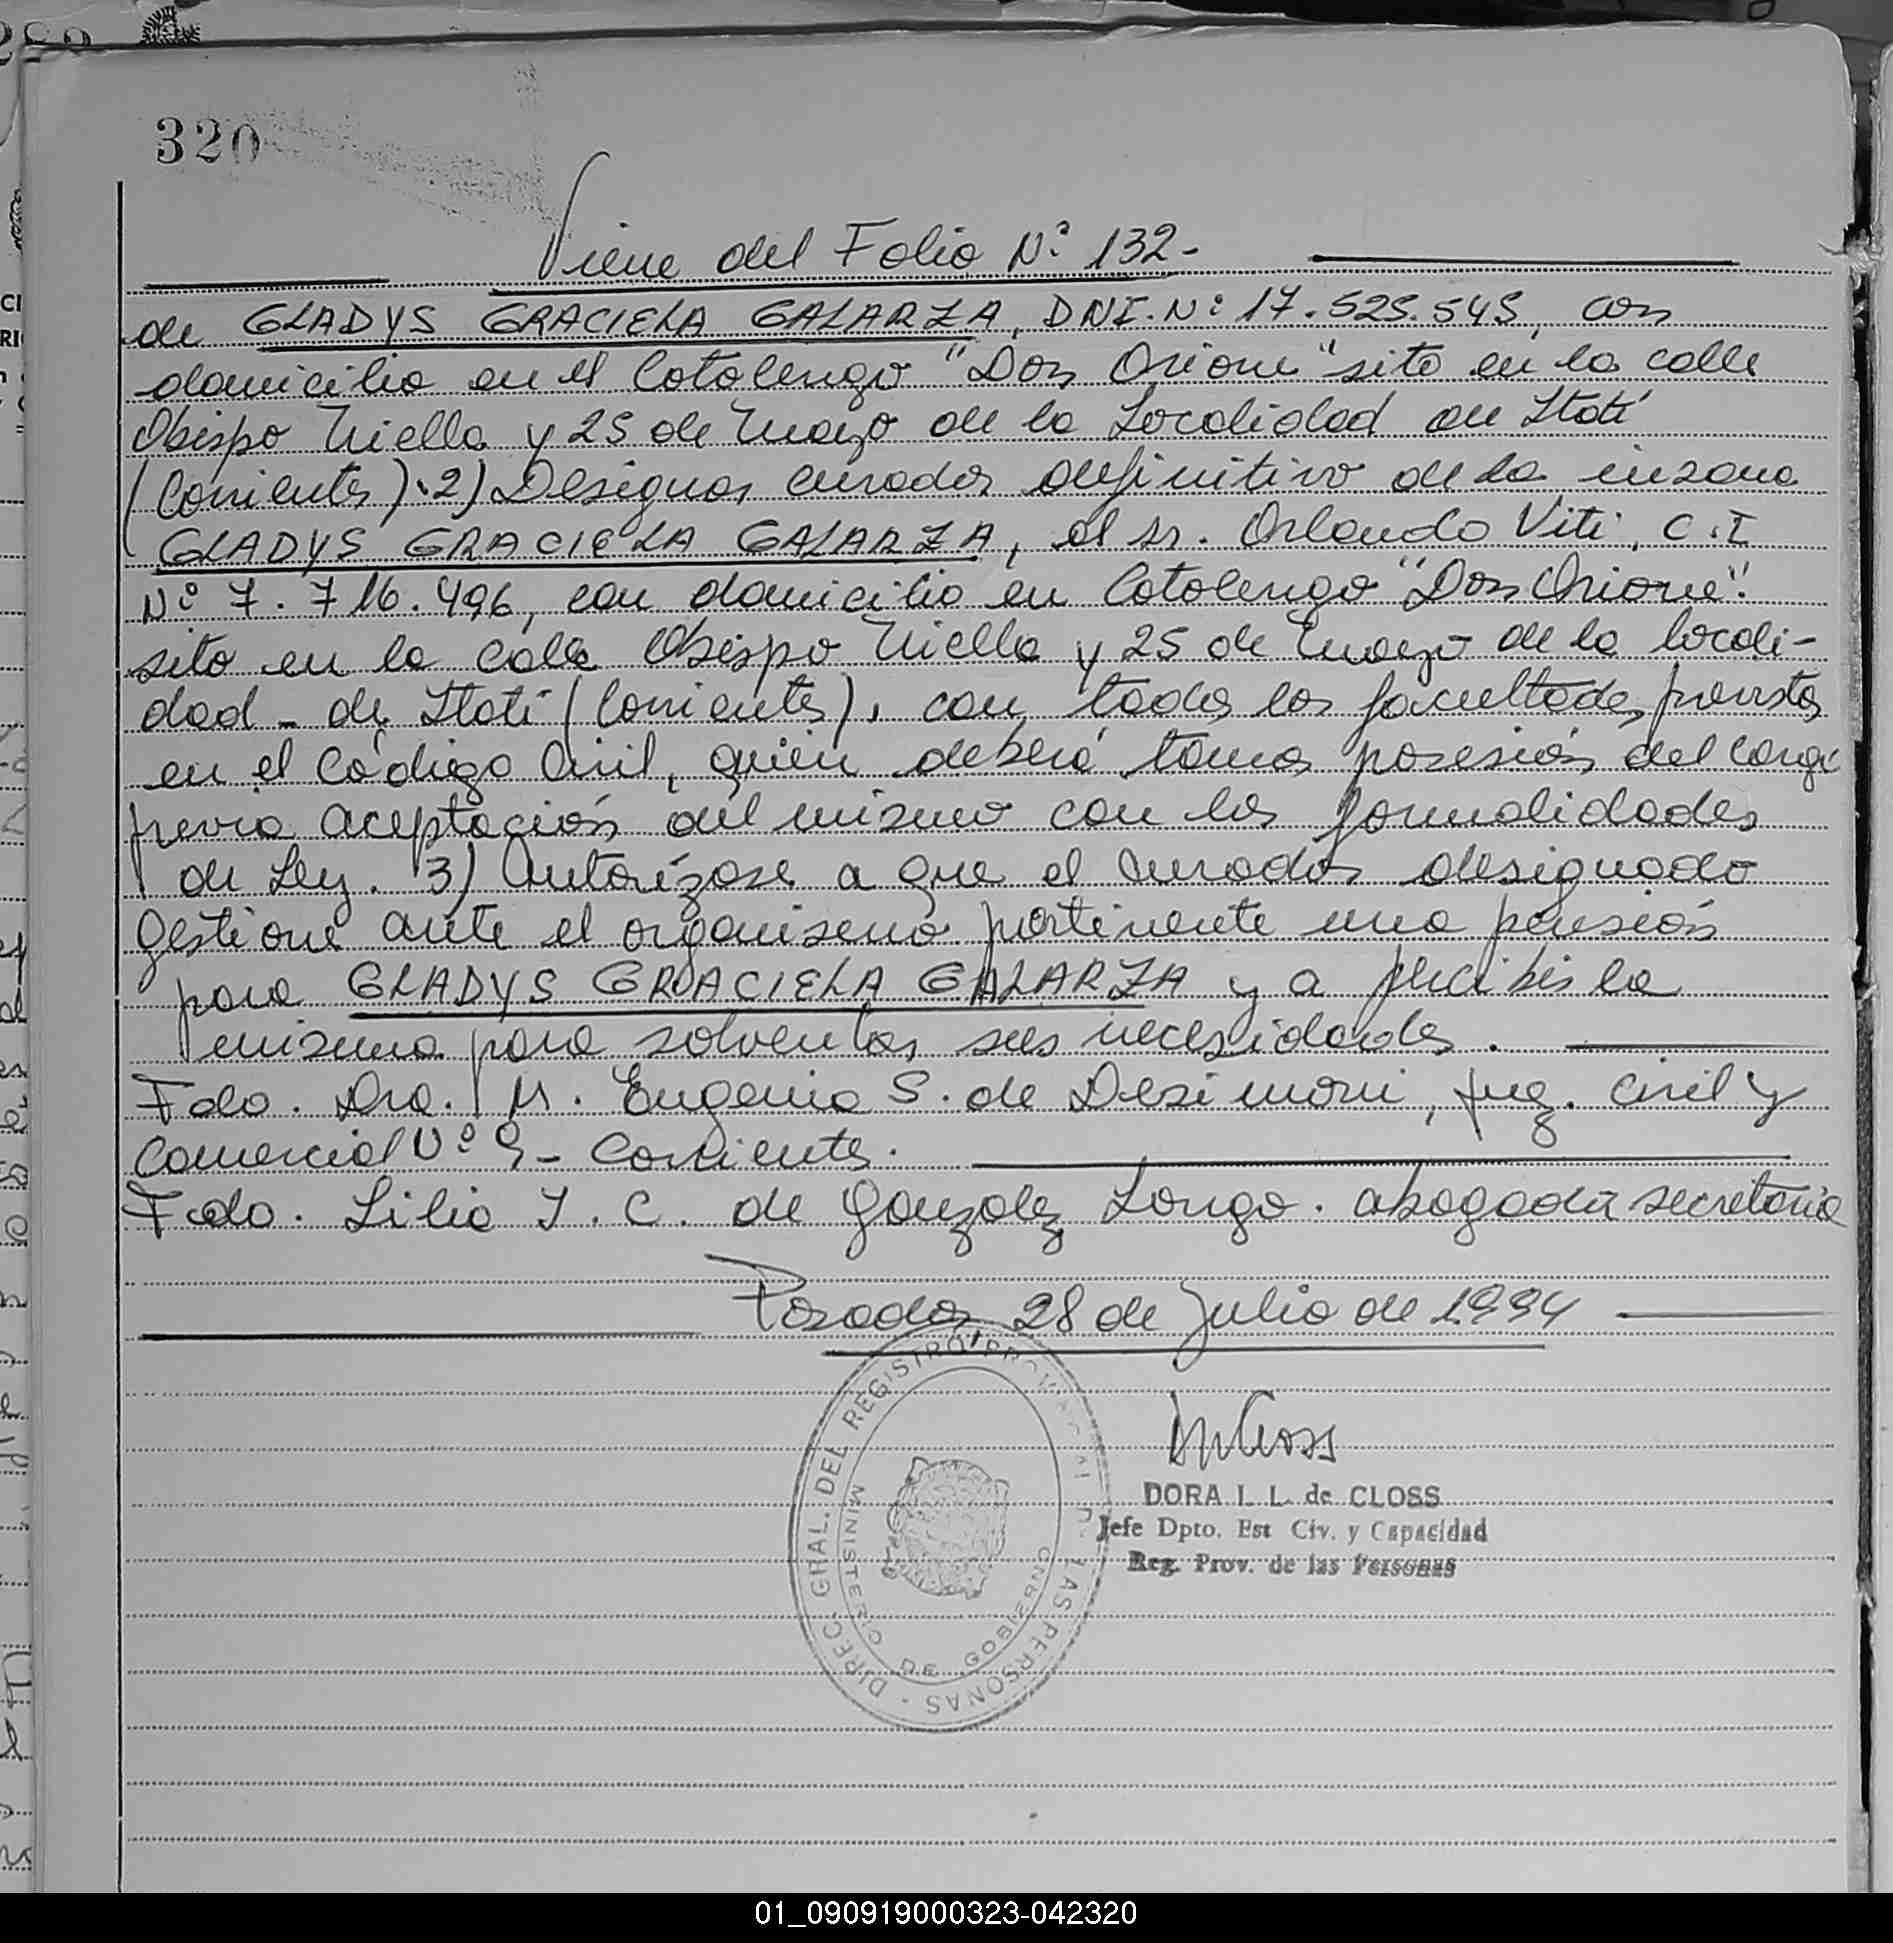 320
Viene del Folio Nº 132-
de GLADYS GRACIELA GALARZA, DNI. Nº 17.525.545, con
domicilio en el Cotolengo "Don Orione" sito en la calle
Obispo Niella y 25 de Mayo de la Localidad de Itatí
(Corrientes).2) Designar curador definitivo de la insana
GLADYS GRACIELA GALARZA, al sr. Orlando Viti, C.I
Nº 7.716.496, con domicilio en Cotolengo "Don Orione".
sito en la calle Obispo Niella y 25 de Mayo de la locali-
dad - de Itatí (Corrientes), con todas las facultades previstas
en el Código Civil, quien deberá tomar posesión del cargo
previa aceptación del mismo con las formalidades
de Ley. 3) Autorízase a que el curador designado
gestione ante el organismo pertinente una pensión
para GLADYS GRACIELA GALARZA y a percibir la
misma para solventar sus necesidades.
Fdo. Dra. M. Eugenia S. de Desimoni, Juez. Civil y
Comercial Nº 9 - Corrientes.
Fdo. Lilia I. C. de Gonzalez Longo. abogada secretaria
Posadas, 28 de Julio de 1.994
DIREC. GRAL. DEL REGISTRO PROVINCIAL DE LAS PERSONAS
MINISTERIO DE GOBIERNO
DORA I. L. de CLOSS
Jefe Dpto. Est Civ. y Capacidad
Reg. Prov. de las Personas
01_090919000323-042320